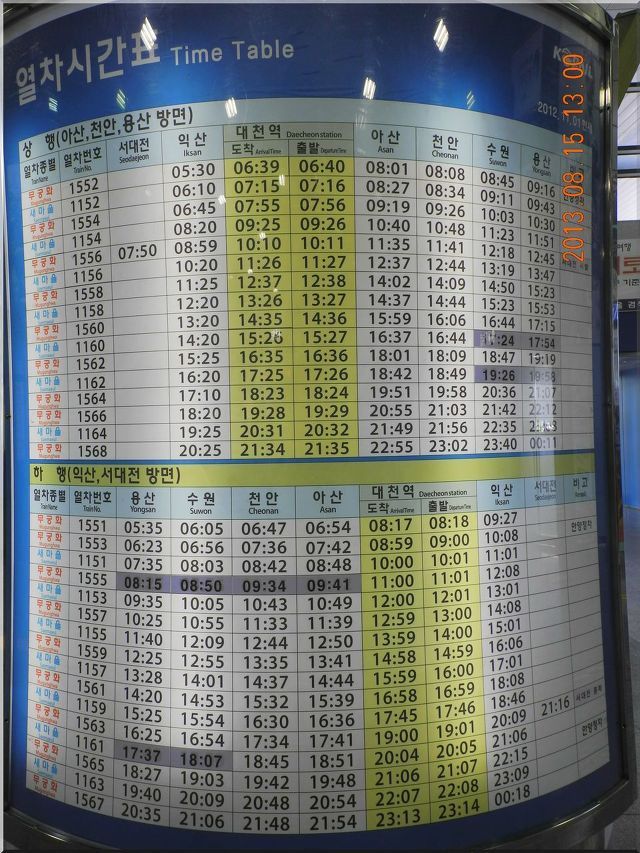 열차시간표 Time Table
2013 08 15 13:00
상 행(아산,천안,용산 방면)
열차종별 Train Name 열차번호 Train No. 서대전 Seodaejeon 익산 Iksan 대천역 Daecheon station 도착 Arrival Time 출발 Departure Time 아산 Asan 천안 Cheonan 수원 Suwon 용산 Yongsan
무궁화 1552 05:30 06:39 06:40 08:01 08:08 08:45 09:16
새마을 1152 06:10 07:15 07:16 08:27 08:34 09:11 09:43
무궁화 1554 06:45 07:55 07:56 09:19 09:26 10:03 10:30
새마을 1154 08:20 09:25 09:26 10:40 10:48 11:23 11:51
무궁화 1556 07:50 08:59 10:10 10:11 11:35 11:41 12:18 12:45
새마을 1156 10:20 11:26 11:27 12:37 12:44 13:19 13:47
무궁화 1558 11:25 12:37 12:38 14:02 14:09 14:50 15:23
새마을 1158 12:20 13:26 13:27 14:37 14:44 15:23 15:53
무궁화 1560 13:20 14:35 14:36 15:59 16:06 16:44 17:15
새마을 1160 14:20 15:26 15:27 16:37 16:44 17:24 17:54
무궁화 1562 15:25 16:35 16:36 18:01 18:09 18:47 19:19
새마을 1162 16:20 17:25 17:26 18:42 18:49 19:26 19:58
무궁화 1564 17:10 18:23 18:24 19:51 19:58 20:36 21:07
무궁화 1566 18:20 19:28 19:29 20:55 21:03 21:42 22:12
새마을 1164 19:25 20:31 20:32 21:49 21:56 22:35
무궁화 1568 20:25 21:34 21:35 22:55 23:02 23:40 00:11
하 행(익산,서대전 방면)
열차종별 Train Name 열차번호 Train No. 용산 Yongsan 수원 Suwon 천안 Cheonan 아산 Asan 대천역 Daecheon station 도착 Arrival Time 출발 Departure Time 익산 Iksan 서대전 Seodaejeon 비고
무궁화 1551 05:35 06:05 06:47 06:54 08:17 08:18 09:27 안양정차
무궁화 1553 06:23 06:56 07:36 07:42 08:59 09:00 10:08
새마을 1151 07:35 08:03 08:42 08:48 10:00 10:01 11:01
무궁화 1555 08:15 08:50 09:34 09:41 11:00 11:01 12:08
새마을 1153 09:35 10:05 10:43 10:49 12:00 12:01 13:01
무궁화 1557 10:25 10:55 11:33 11:39 12:59 13:00 14:08
새마을 1155 11:40 12:09 12:44 12:50 13:59 14:00 15:01
무궁화 1559 12:25 12:55 13:35 13:41 14:58 14:59 16:06
새마을 1157 13:28 14:01 14:37 14:44 15:59 16:00 17:01
무궁화 1561 14:20 14:53 15:32 15:39 16:58 16:59 18:08
새마을 1159 15:25 15:54 16:30 16:36 17:45 17:46 18:46
무궁화 1563 16:25 16:54 17:34 17:41 19:00 19:01 20:09 21:16
새마을 1161 17:37 18:07 18:45 18:51 20:04 20:05 21:06
무궁화 1565 18:27 19:03 19:42 19:48 21:06 21:07 22:15 안양정차
새마을 1163 19:40 20:09 20:48 20:54 22:07 22:08 23:09
무궁화 1567 20:35 21:06 21:48 21:54 23:13 23:14 00:18